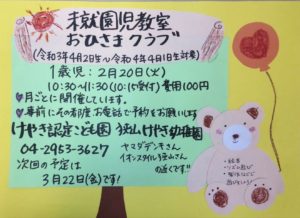 未就園児教室
おひさまクラブ
(令和3年4月2日〜令和4年4月1日生対象)
1歳児:2月20日(火)
10:30〜11:30(10:15受付)費用100円
♥月ごとに開催しています。
♥事前にその都度お電話で予約をお願いします
けやき認定こども園 狭山けやき幼稚園
04-2953-3627
ヤマダデンキさん
イオンスタイル狭山さん
の近くです
次回の予定は
3月22日(金)です!
・絵本